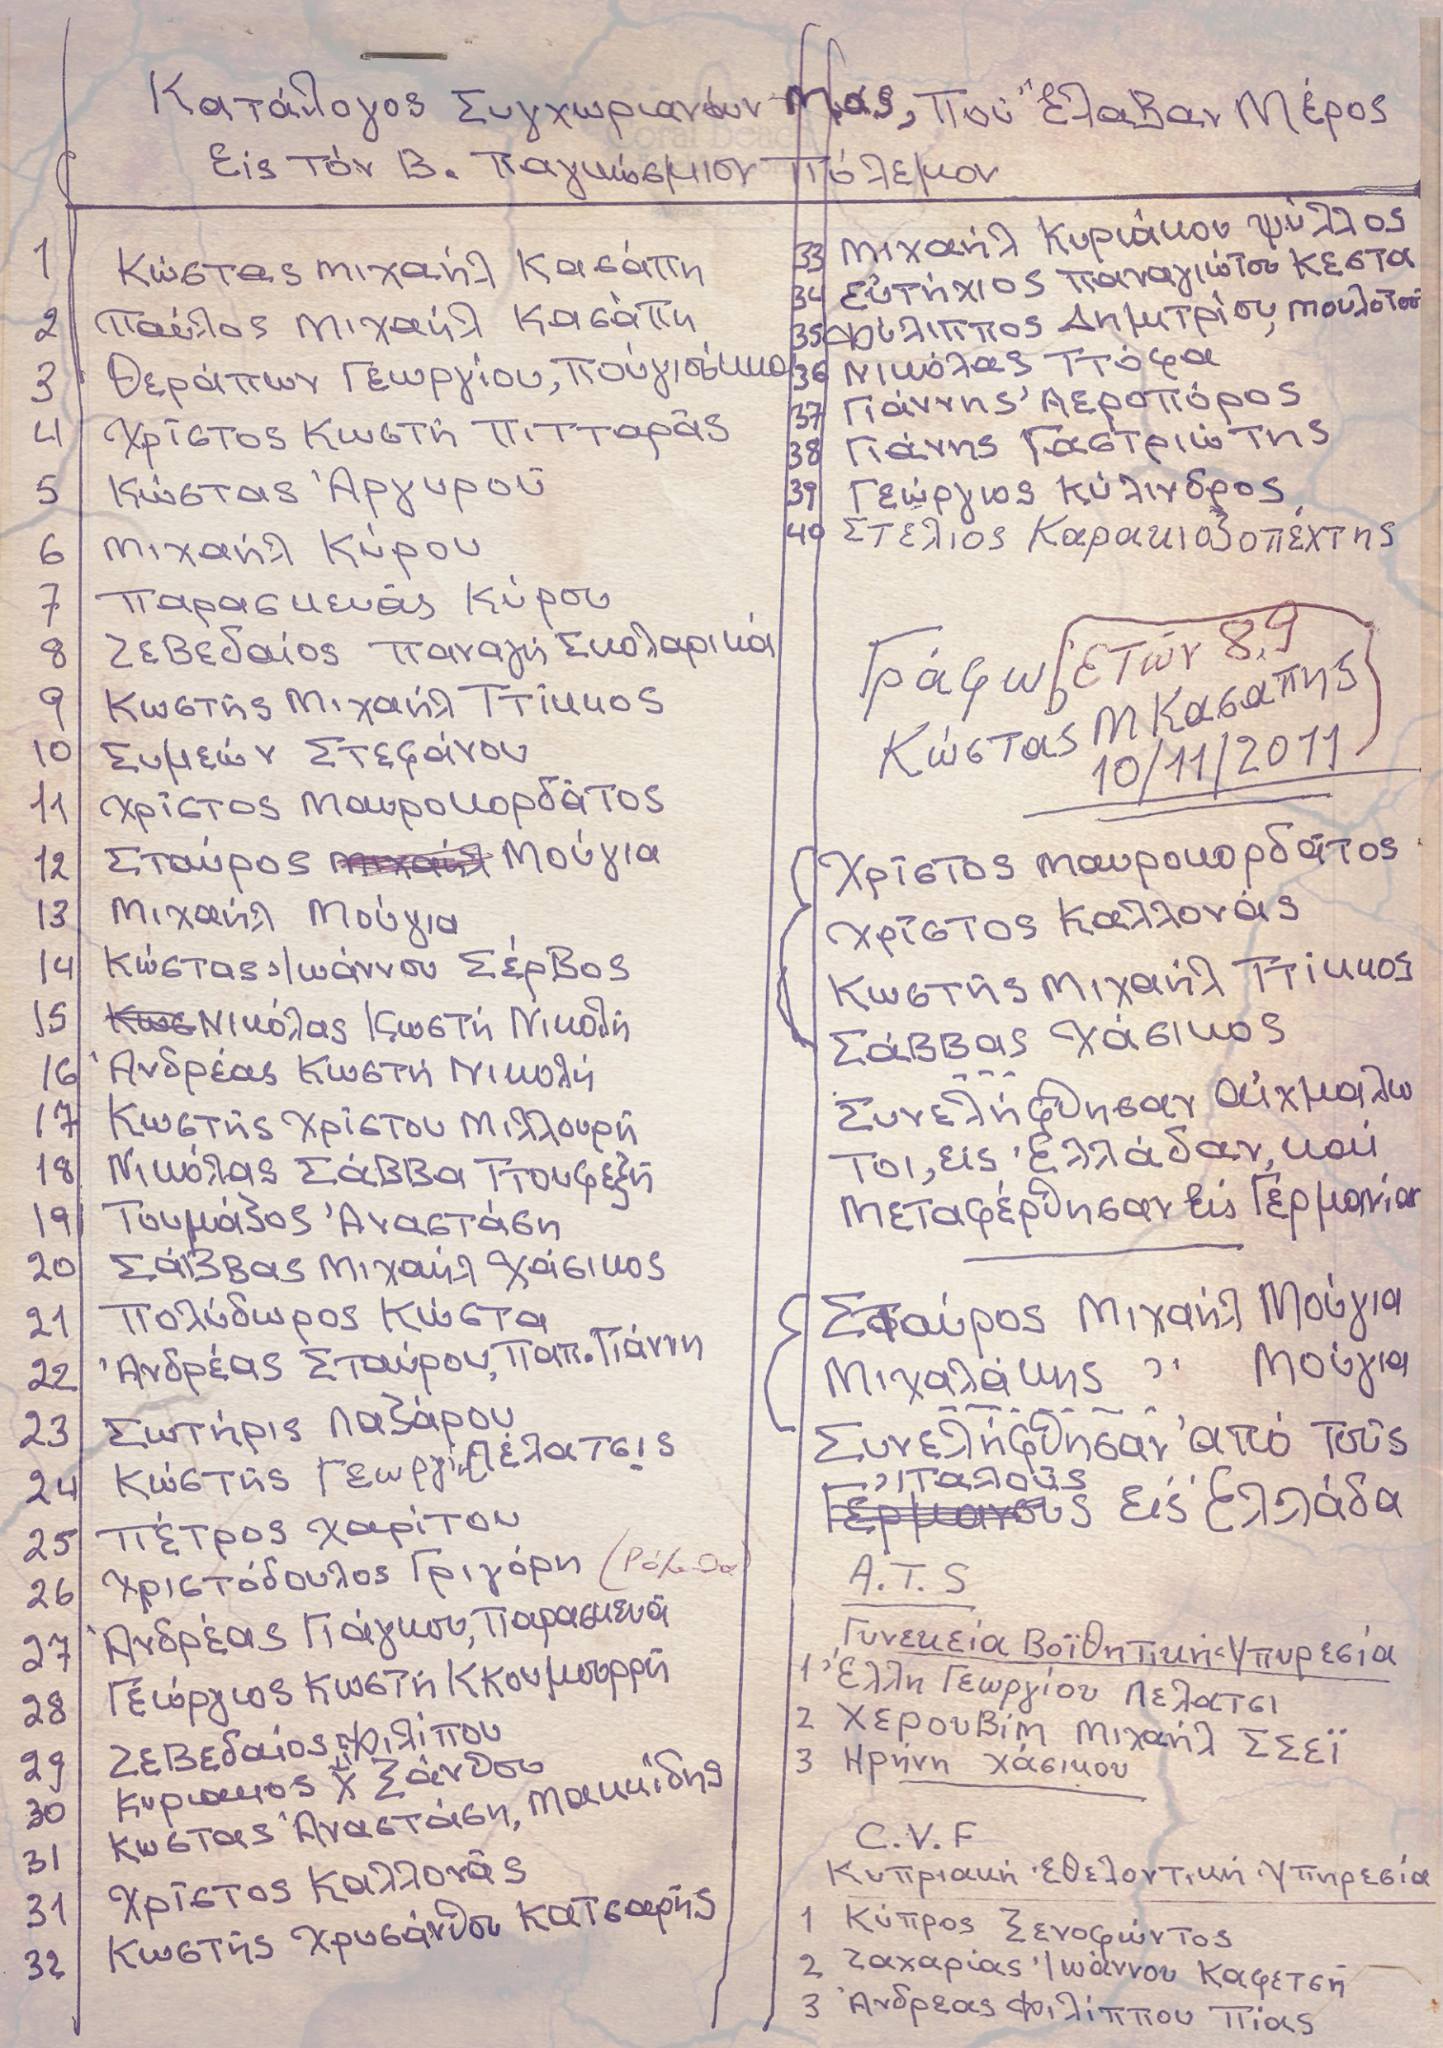 Κατάλογος Συγχωριανών Μας, Πού Έλαβαν Μέρος
Εις τόν Β. Παγκόσμιον Πόλεμον
1 Κώστας Μιχαήλ Κασάπη
2 Παύλος Μιχαήλ Κασάπη
3 Θεράπων Γεωργίου,
4 Χρίστος Κωστή Πιτταράς
5 Κώστας Αργυρού
6 Μιχαήλ Κύρου
7 Παρασκευάς Κύρου
8 Ζεβεδαίος Παναγή Σκολαρικά
9 Κωστής Μιχαήλ Ττίκκος
10 Συμεών Στεφάνου
11 Χρίστος Μαυροκορδάτος
12 Σταύρος Μιχαήλ Μούγια
13 Μιχαήλ Μούγια
14 Κώστας Ιωάννου Σέρβος
15 Κωσ Νικόλας Κωστή Νικολή
16 Ανδρέας Κωστή Νικολή
17 Κωστής Χρίστου Μιλλουρή
18 Νικόλας Σάββα Ττουφεξή
19 Τουμάζος Αναστάση
20 Σάββας Μιχαήλ Χάσικος
21 Πολύδωρος Κώστα
22 Ανδρέας Σταύρου, Παπ. Γιάννη
23 Σωτήρις Λαζάρου
24 Κώστής Γεωργί Πέλατσις
25 Πέτρος Χαρίτου
26 Χριστόδουλος Γρηγόρη
27 Ανδρέας Γιάγκου, Παρασκευά
28 Γεώργιος Κωστή Κκουμουρρή
29 Ζεβεδαίος Φιλίπου
30 Κυριακος Χ Ξάνθου
31 Κωστας Αναστάση, Μακκίδης
31 Χρίστος Καλλονάς
32 Κωστής Χρυσάνθου Κατσαρής
33 Μιχαήλ Κυριάκου Ψύλλος
34 Ευτήχιος Παναγιώτου Κεστα
35 Φύλιππος Δημιτρίου,
36 Νικόλας Ττόφα
37 Γιάννης Αεροπόρος
38 Γιάνης Γαστριώτης
39 Γεώργιος Κύλινδρος
40 Στέλιος Καρακιοζοπέχτης
Γράφω, ετών 89
Κώστας Μ Κασαπης
10/11/2011
Χρίστος Μαυροκορδάτος
Χρίστος Καλλονάς
Κωστής Μιχαήλ Ττίκκος
Σάββας Χάσικος
Συνελήφθησαν αιχμαλω
τοι, εις Ελλάδαν, καί
Μεταφέρθησαν εις Γερμανίαν
Σταύρος Μιχαήλ Μούγια
Μιχαλάκης ,, Μούγια
Συνελήφθησαν από τούς
Ιταλούς
Γερμανους εις Ελλάδα
A.T.S
Γυνεκεία Βοϊθητική Υπυρεσία
1 Έλλη Γεωργίου Πελατσι
2 Χερουβίμ Μιχαήλ Σσεϊ
3 Ηρήνη Χάσικου
C.V.F
Κυπριακή Εθελοντική Υπηρεσία
1 Κύπρος Ξενοφώντος
2 Ζαχαρίας Ιωάννου Καφετσή
3 Ανδρεας Φιλίππου Πίας